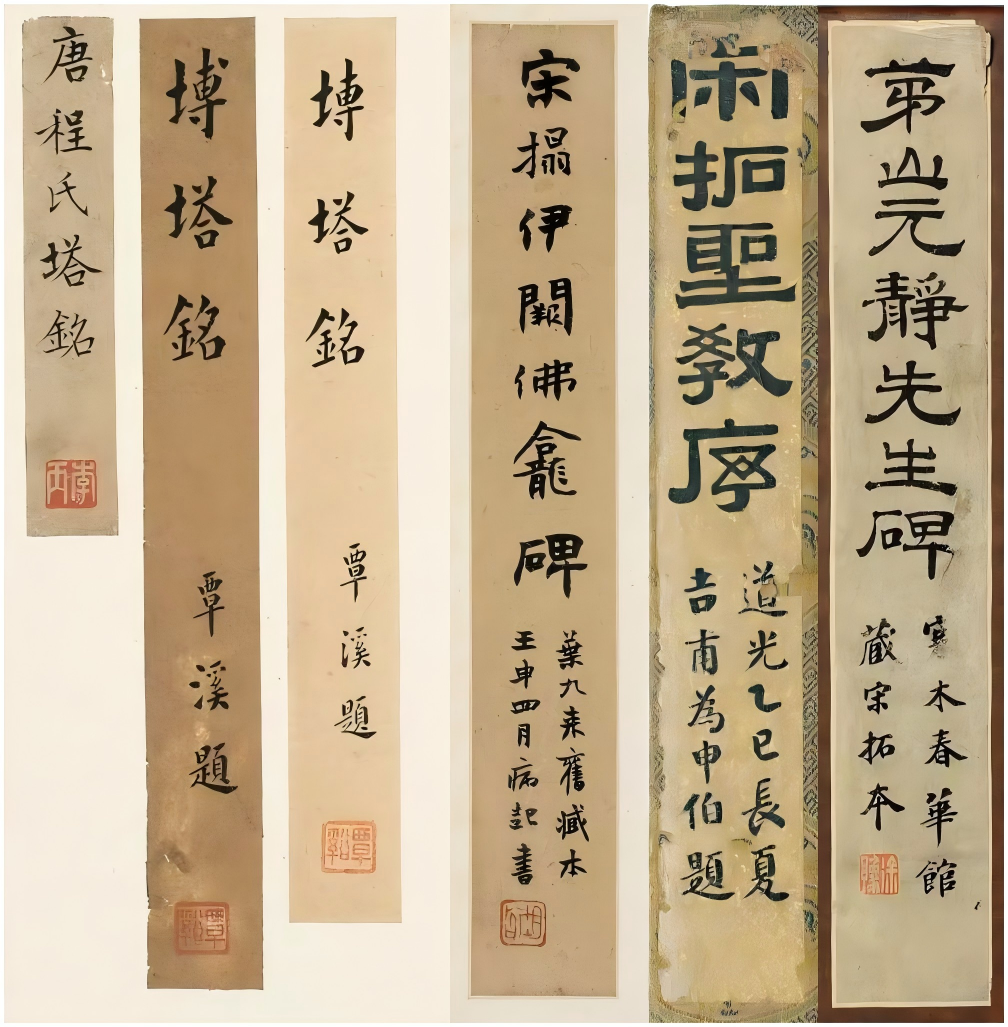 茅山元靜先生碑
寒木春華館
藏宋拓本
宋拓聖教序
道光乙巳長夏
吉甫為申伯題
宋搨伊闕佛龕碑
葉九来舊藏本
壬申四月病起書
塼塔銘
覃溪題
覃谿
塼塔銘
覃溪題
覃谿
唐程氏塔銘